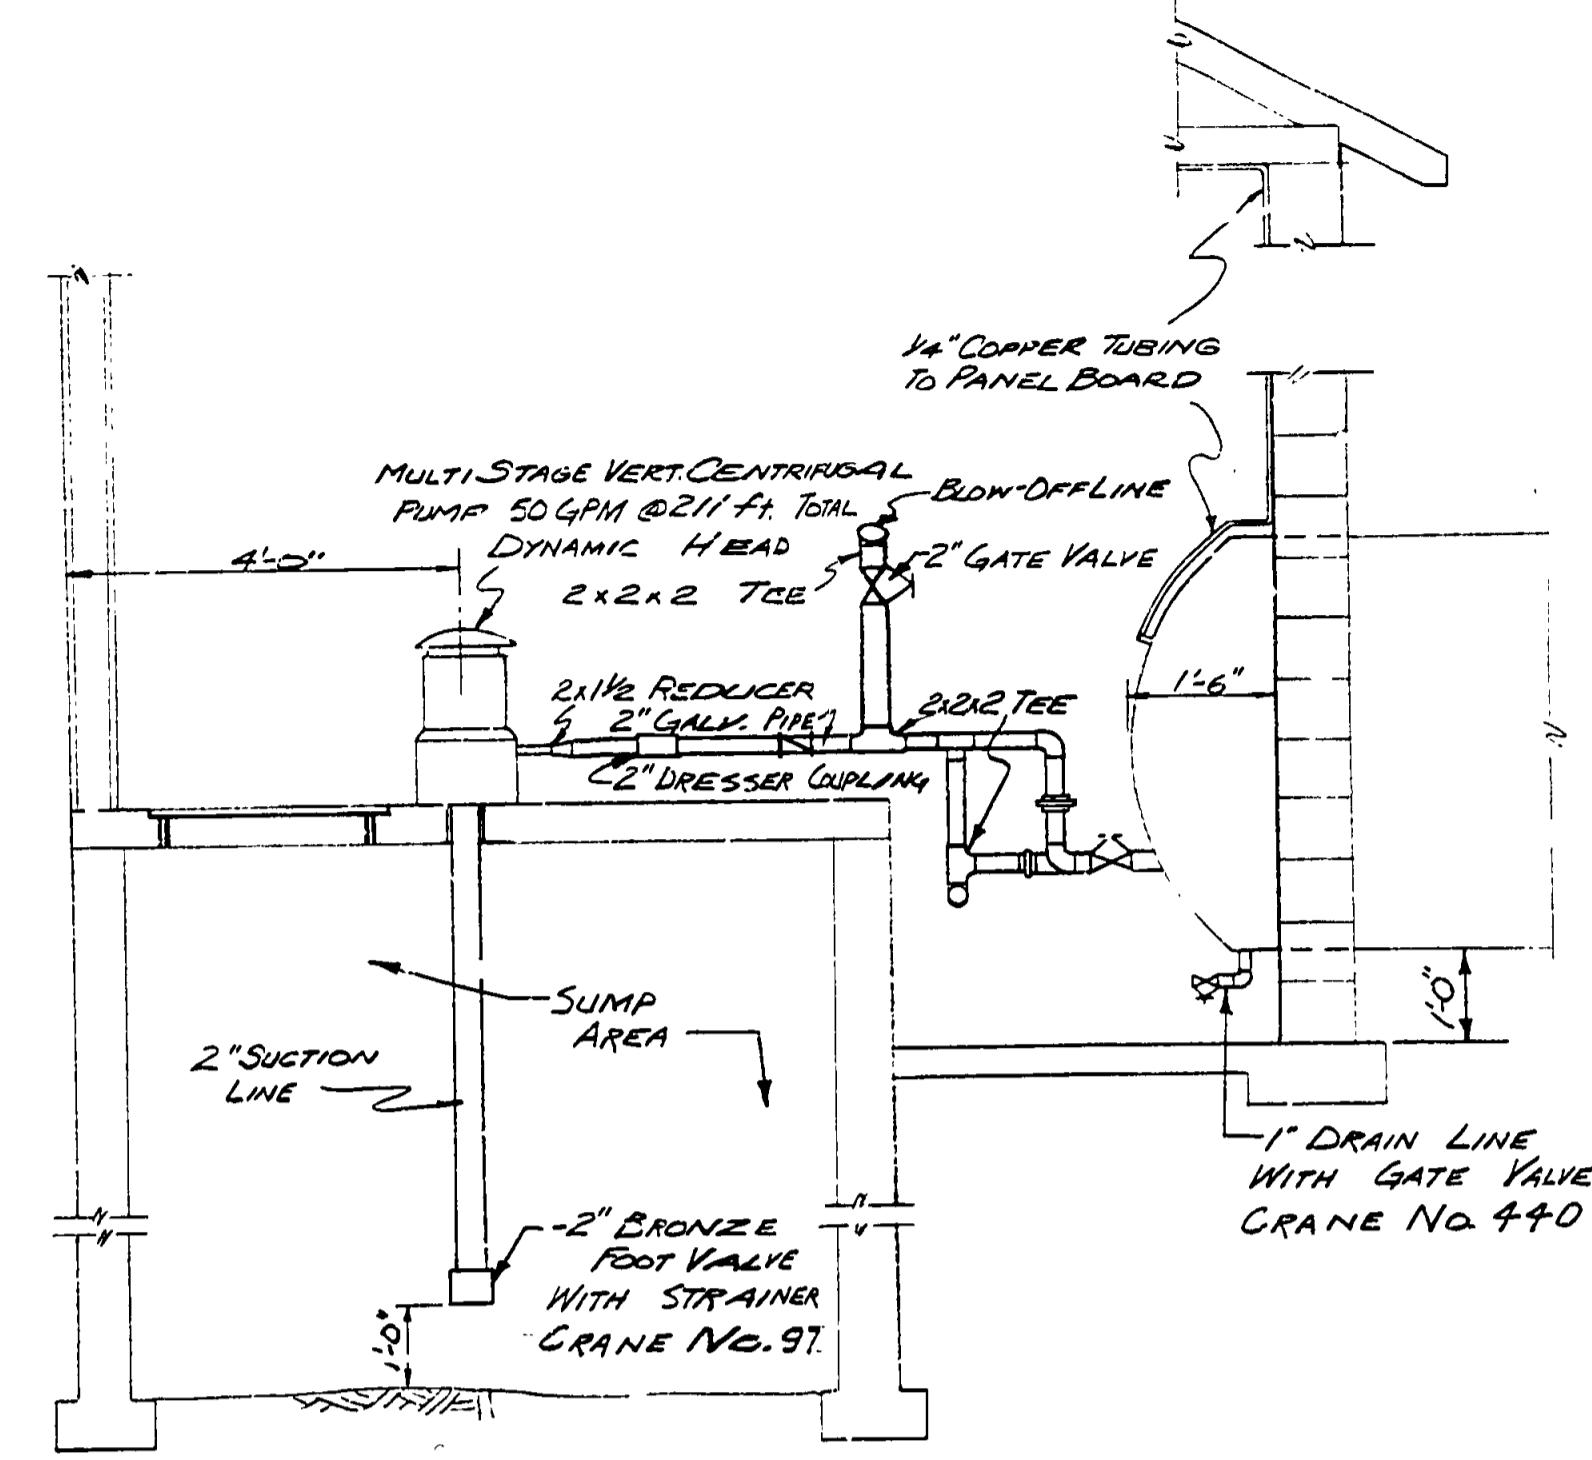 1/4" COPPER TUBING
TO PANEL BOARD
MULTI STAGE VERT. CENTRIFUGAL
PUMP 50 GPM @ 211 ft. TOTAL
DYNAMIC HEAD
BLOW-OFF LINE
4'-0"
2 x 2 x 2 TEE
2" GATE VALVE
2x1½ REDUCER
2" GALV. PIPE
2x2x2 TEE
1'-6"
2" DRESSER COUPLING
SUMP
AREA
2" SUCTION
LINE
1'-0"
1" DRAIN LINE
WITH GATE VALVE
CRANE NO. 440
2" BRONZE
FOOT VALVE
WITH STRAINER
CRANE NO. 97
1'-0"